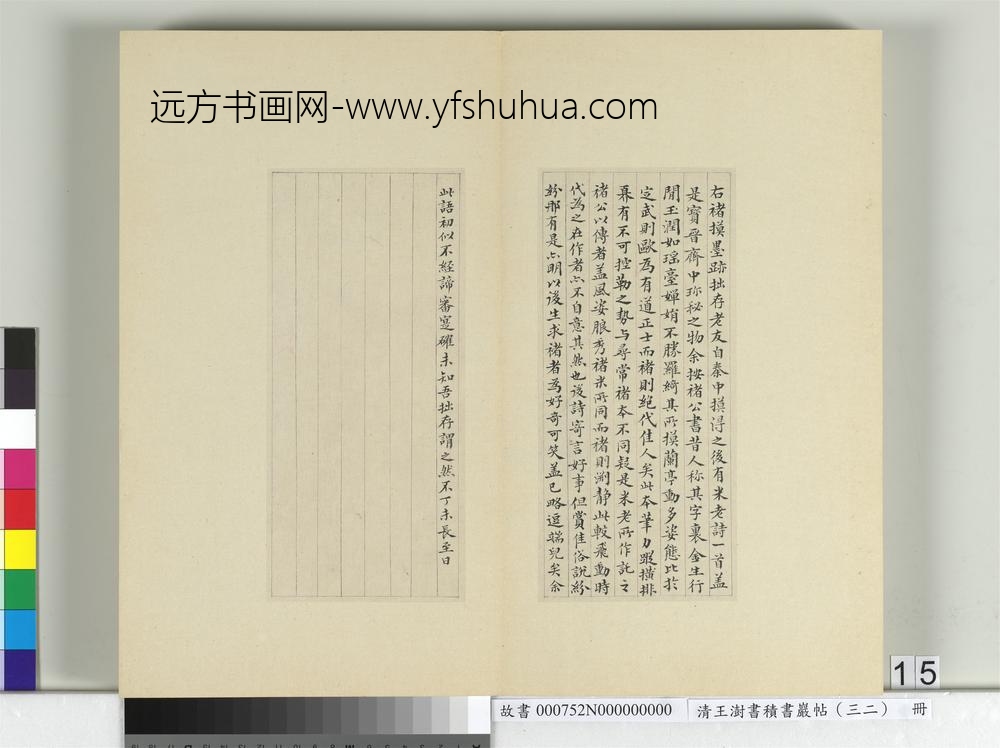 远方书画网-www.yfshuhua.com
右褚摸墨跡拙存老友自秦中摸得之後有米老詩一首蓋
是寶晉齋中珎秘之物余按褚公書昔人称其字裏金生行
閒玉潤如瑶臺嬋娟不勝羅綺其所摸蘭亭動多姿態比於
定武則歐為有道正士而褚則絕代佳人矣此本筆力蹤橫排
奡有不可控勒之勢与尋常褚本不同疑是米老所作託之
褚公以傳者盖風姿朗秀褚米所同而褚則淵静此較飛動時
代為之在作者亦不自意其然也後詩寄言好事但賞佳俗說紛
紛那有是亦明以後生求褚者為好奇可笑盖已略逗端兒矣余
此語初似不經諦審寔確未知吾拙存謂之然不丁未長至日
15
故書 000752N000000000
清王澍書積書巖帖（三二） 冊